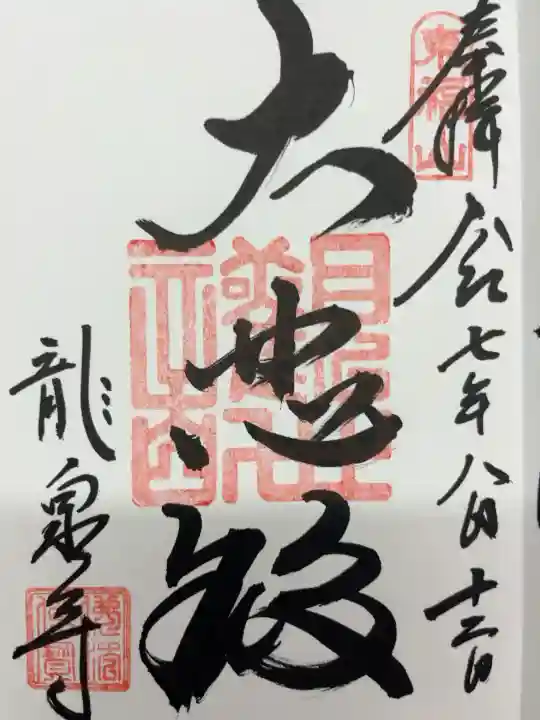 東福山
奉拝
令和七年八月
大悲殿
龍泉寺